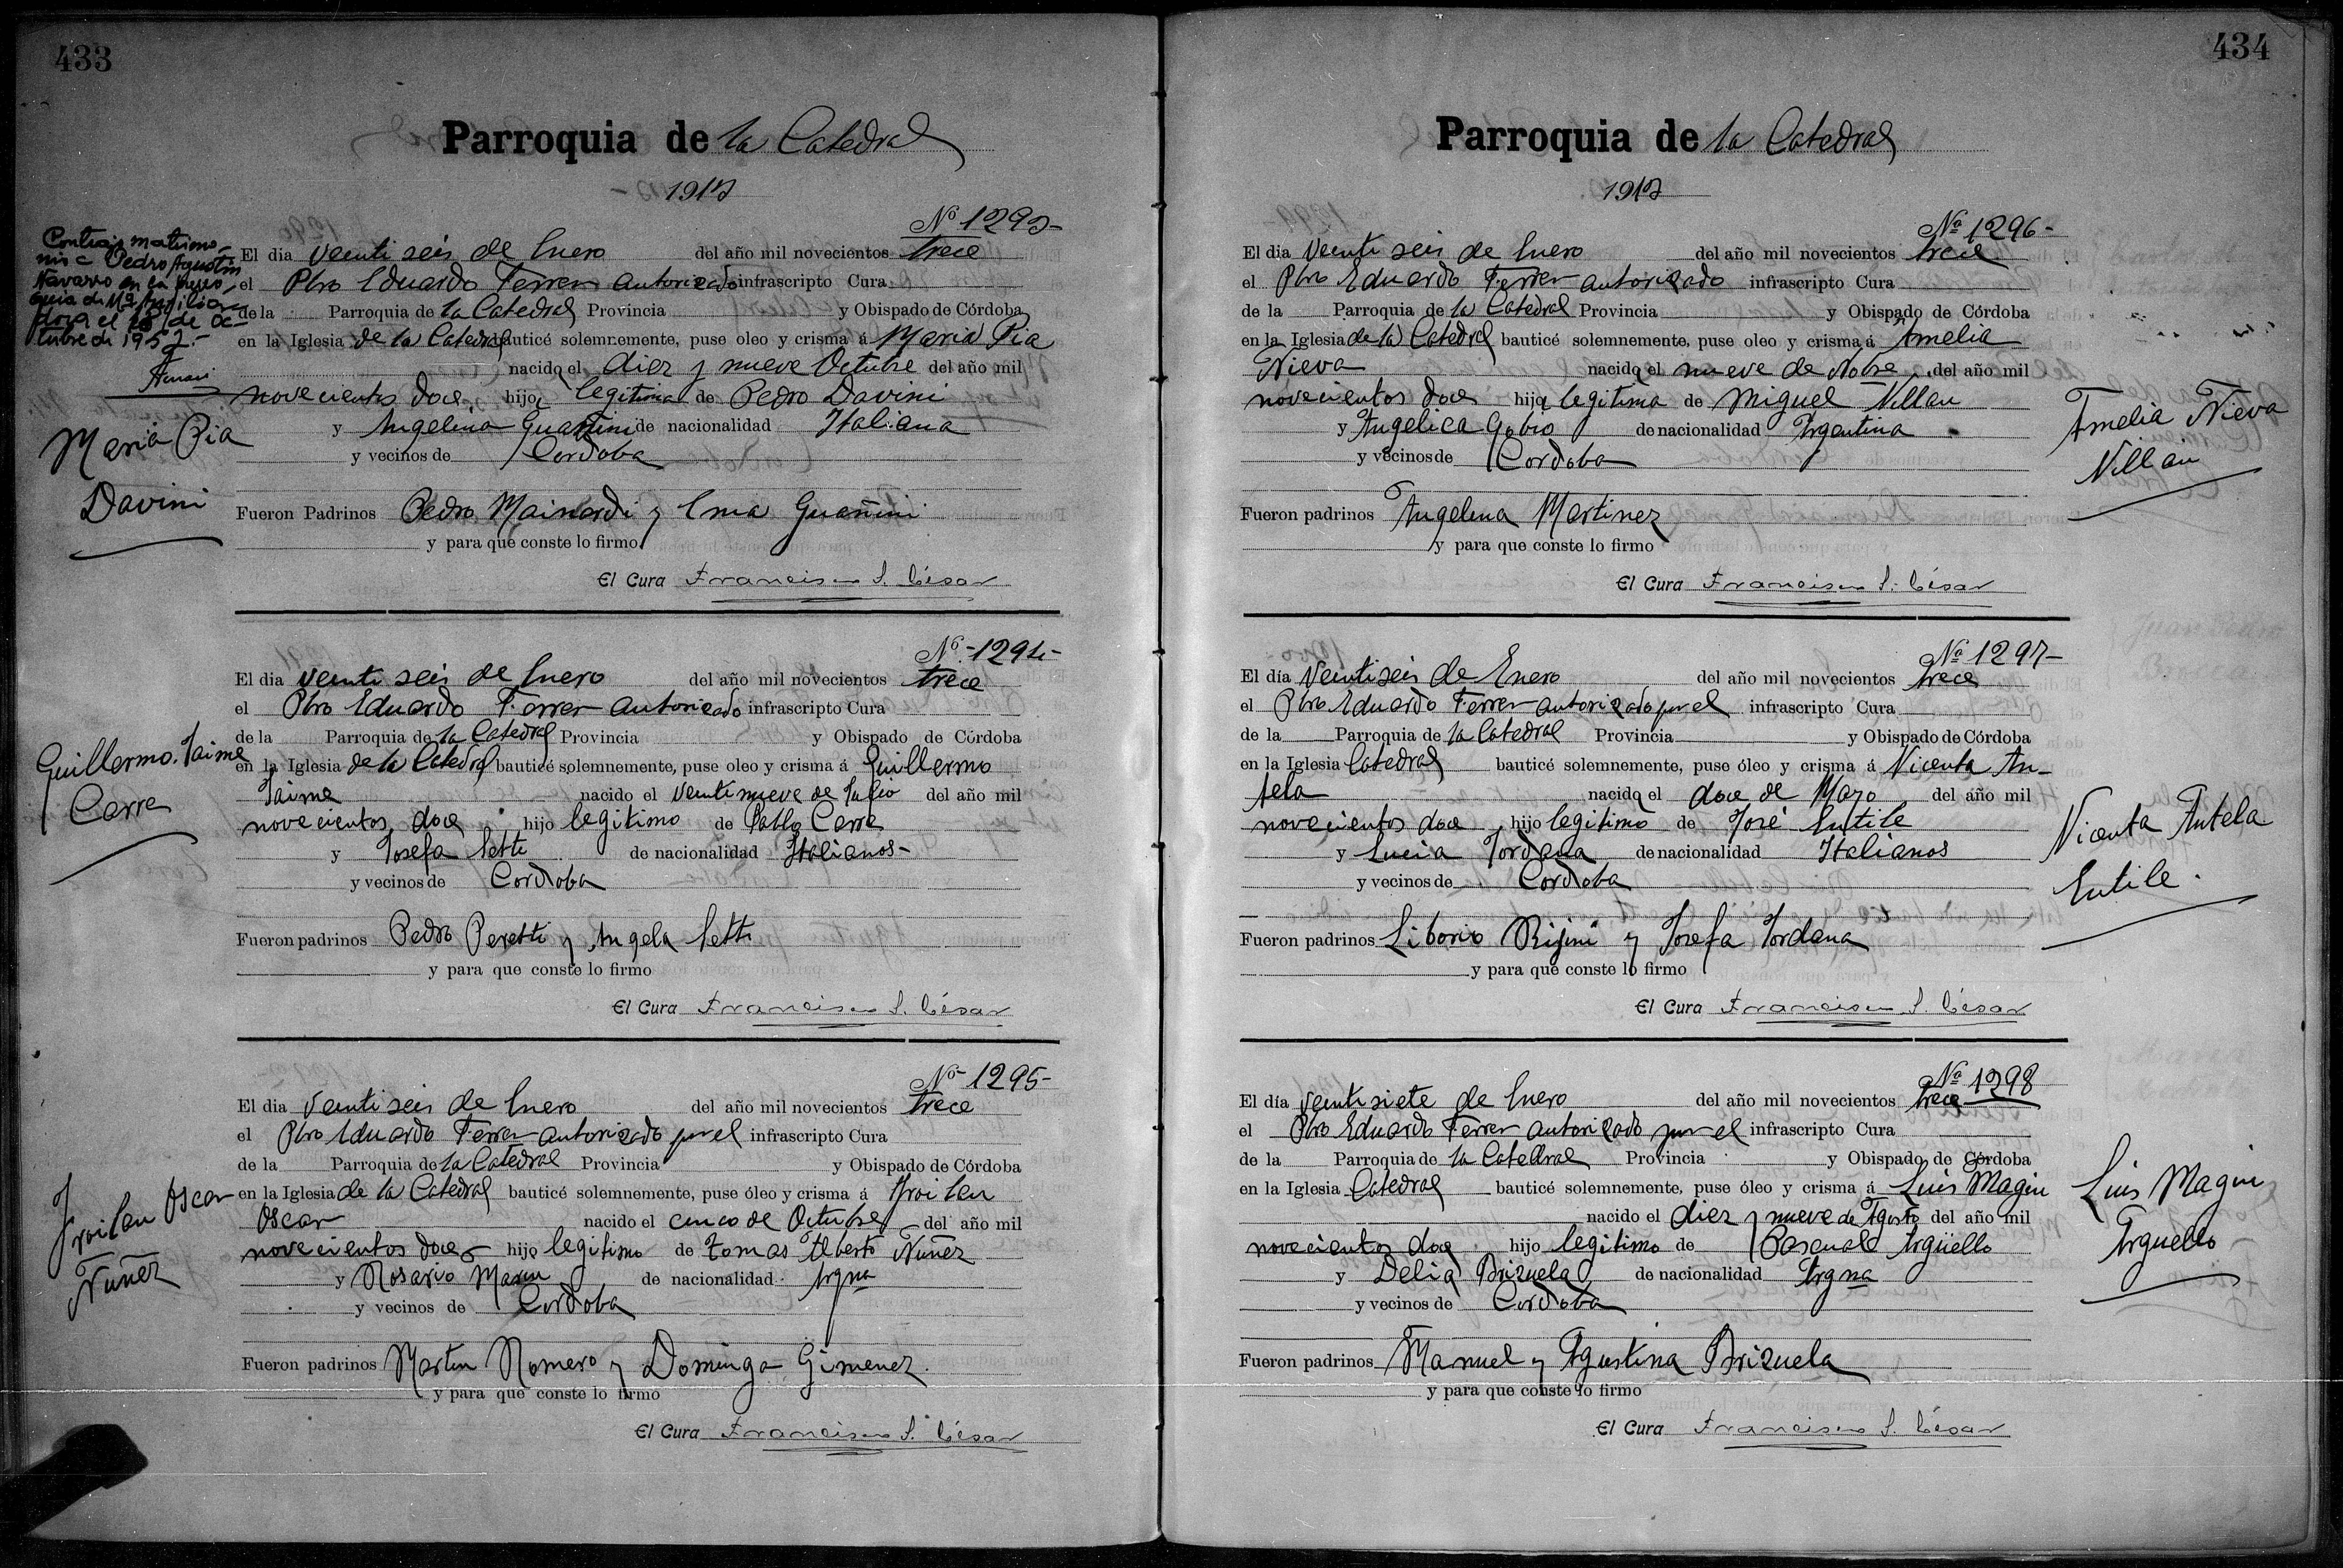 433
Parroquia de la Catedral
1913
Nº 1293-
Contrajo matrimo-
nio c Pedro Agustin
Navarro en la parro-
quia de Mª Auxilia-
dora el de Oc-
tubre de 1957.-
Maria Pia
Davini
El dia Veinti seis de Enero del año mil novecientos trece
el Pbro Eduardo Ferrer autorizado infrascripto Cura
de la Parroquia de la Catedral Provincia y Obispado de Córdoba
en la Iglesia de la Catedral bauticé solemnemente, puse oleo y crisma á Maria Pia
nacida el diez y nueve Octubre del año mil
novecientos doce hija legitima de Pedro Davini
y Angelina de nacionalidad Italiana
y vecinos de Cordoba
Fueron Padrinos Pedro Mainardi y Ema
y para que conste lo firmo
El Cura Francisco S. César
Nº 1294-
Guillermo Jaime
Carra
El dia veinti seis de Enero del año mil novecientos trece
el Pbro Eduardo Ferrer autorizado infrascripto Cura
de la Parroquia de la Catedral Provincia y Obispado de Córdoba
en la Iglesia de la Catedral bauticé solemnemente, puse oleo y crisma á Guillermo
Jaime nacido el veintinueve de Julio del año mil
novecientos doce hijo legitimo de Pablo Carra
y Josefa Setti de nacionalidad Italianos-
y vecinos de Cordoba
Fueron padrinos Pedro Peretti y Angela Setti
y para que conste lo firmo
El Cura Francisco S. César
Nº 1295-
Froilan Oscar
Nuñez
El dia Veinti seis de Enero del año mil novecientos trece
el Pbro Eduardo Ferrer autorizado por el infrascripto Cura
de la Parroquia de la Catedral Provincia y Obispado de Córdoba
en la Iglesia de la Catedral bauticé solemnemente, puse óleo y crisma á Froilan
Oscar nacido el cinco de Octubre del año mil
novecientos doce hijo legitimo de Tomas Alberto Nuñez
y Rosario Marin de nacionalidad Argna
y vecinos de Cordoba
Fueron padrinos Martin Romero y Dominga Gimenez.
y para que conste lo firmo
El Cura Francisco S. César
434
Parroquia de la Catedral
1913
Nº 1296-
El dia Veinti seis de Enero del año mil novecientos trece
el Pbro Eduardo Ferrer autorizado infrascripto Cura
de la Parroquia de la Catedral Provincia y Obispado de Córdoba
en la Iglesia de la Catedral bauticé solemnemente, puse oleo y crisma á Amelia
Nieva nacida el nueve de Nobre del año mil
novecientos doce hija legitima de Miguel Villan
y Angelica Gobio de nacionalidad Argentina
y vecinos de Cordoba
Fueron padrinos Angelina Martinez
y para que conste lo firmo
El Cura Francisco S. César
Amelia Nieva
Villan
Nº 1297-
El día Veintiseis de Enero del año mil novecientos trece
el Pbro Eduardo Ferrer autorizado por el infrascripto Cura
de la Parroquia de la Catedral Provincia y Obispado de Córdoba
en la Iglesia Catedral bauticé solemnemente, puse óleo y crisma á Vicenta An-
tela nacida el doce de Mazo del año mil
novecientos doce hijo legitimo de José Entile
y Lucia Jordana de nacionalidad Italianos
y vecinos de Cordoba
Fueron padrinos Liborio Risini y Josefa Jordana
y para que conste lo firmo
El Cura Francisco S. César
Vicenta Antela
Entile.
Nº 1298
El día Veintisiete de Enero del año mil novecientos trece
el Pbro Eduardo Ferrer autorizado por el infrascripto Cura
de la Parroquia de la Catedral Provincia y Obispado de Córdoba
en la Iglesia Catedral bauticé solemnemente, puse óleo y crisma á Luis Magin
nacido el diez y nueve de Agosto del año mil
novecientos doce hijo legitimo de Pascual Argüello
y Delia Brizuela de nacionalidad Argna
y vecinos de Cordoba
Fueron padrinos Manuel y Agustina Brizuela
y para que conste lo firmo
El Cura Francisco S. César
Luis Magin
Arguello